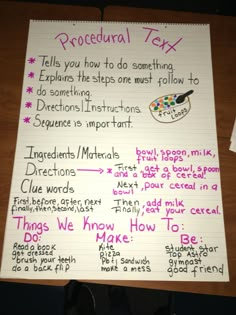 Procedural Text
* Tells you how to do something
* Explains the steps one must follow to
* do something.
* Directions/Instructions
* Sequence is important.
fruit Loops
Ingredients/Materials bowl, spoon, milk, fruit loops
Directions → First, get a bowl, spoon and a box of cereal.
Clue words Next, pour cereal in a bowl
First, before, after, next Then, add milk
finally, then, second, last Finally, eat your cereal.
Things We Know How To:
Do: Make: Be:
Read a book Kite student star
get dressed pizza Top Astro
brush your teeth PB+J Sandwich gymnast
do a back flip make a mess good friend